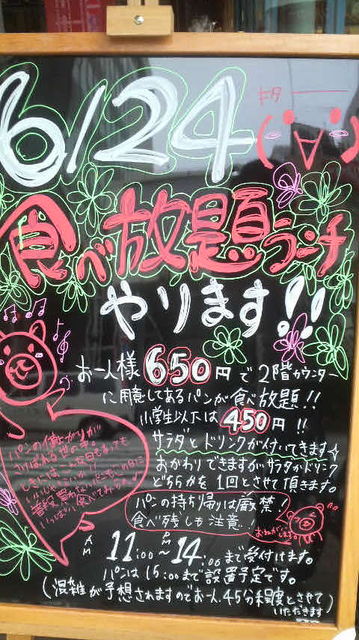 6/24
キタ
食べ放題ランチ
やります!!
お一人様 650円で2階カウンター
に用意してあるパンが食べ放題!!
小学生以下は 450円!!
サラダとドリンクが付いてきます
おかわりできますがサラダかドリンク
どちらかを1回とさせて頂きます。
パンの持ち帰りは厳禁!
食べ残しも注意!!
AM 11:00〜PM 14:00まで受付けます。
パンは15:00まで設置予定です。
(混雑が予想されますのでお一人45分程度とさせて
いただきます)